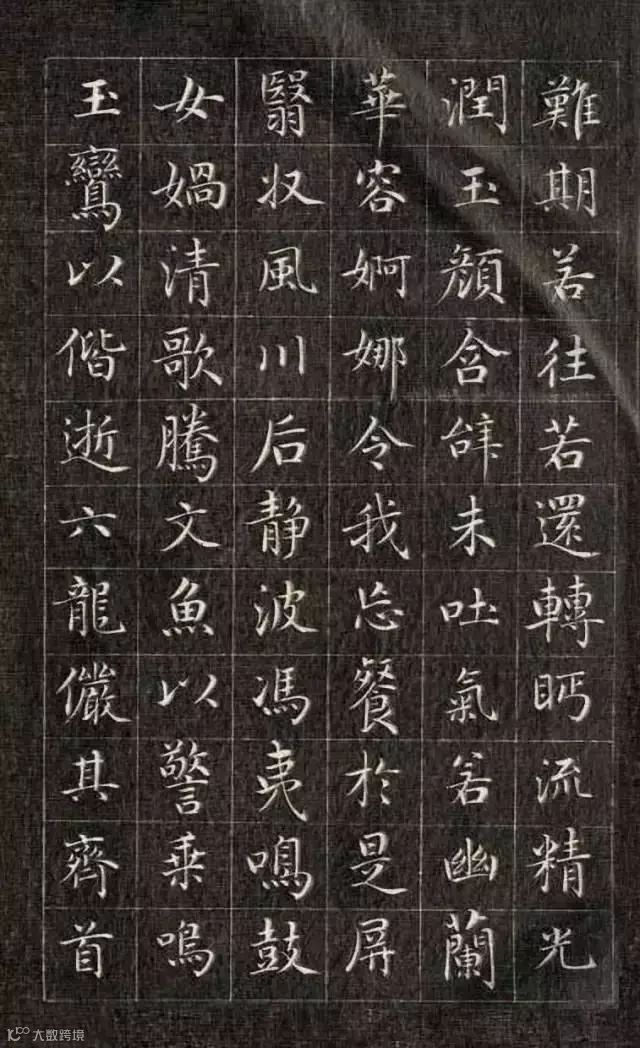 難期若往若還轉眄流精光
潤玉顏含辝未吐氣若幽蘭
華容婀娜令我忘餐於是屏
翳收風川后静波馮夷鳴鼓
女媧清歌騰文魚以警乗鳴
玉鸞以偕逝六龍儼其齊首
大数跨境